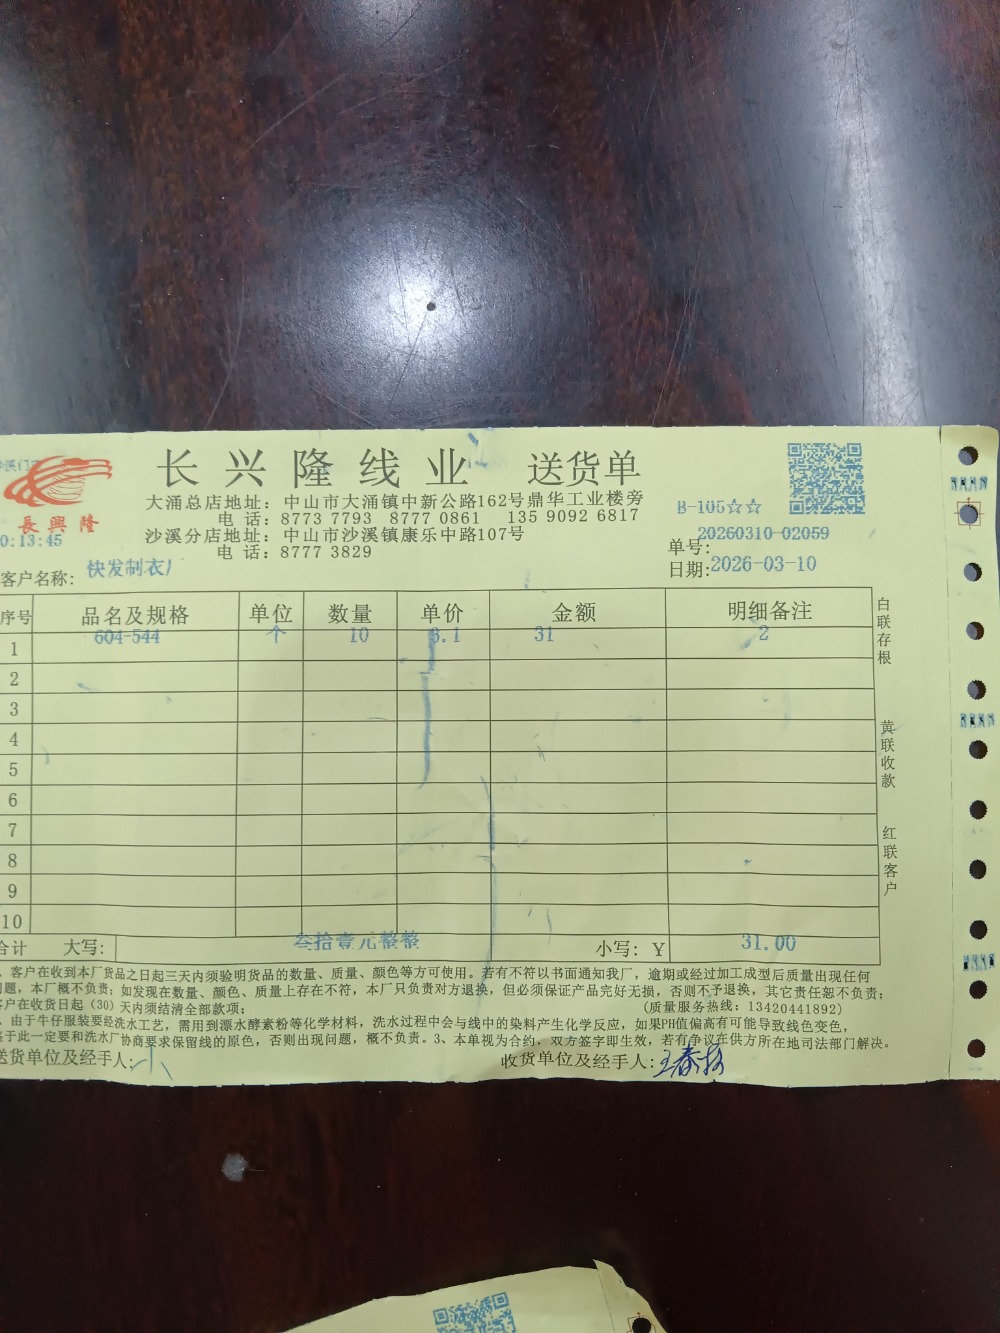 长兴隆线业 送货单
大涌总店地址：中山市大涌镇中新公路162号鼎华工业楼旁
电 话：8773 7793 8777 0861 135 9092 6817
沙溪分店地址：中山市沙溪镇康乐中路107号
电 话：8777 3829
長興隆
0:13:45
B-105☆☆
单号：20260310-02059
日期：2026-03-10
客户名称：快发制衣厂
序号 品名及规格 单位 数量 单价 金额 明细备注
1 604-544 个 10 3.1 31 2
2
3
4
5
6
7
8
9
10
合计 大写：叁拾壹元整整 小写：￥ 31.00
、客户在收到本厂货品之日起三天内须验明货品的数量、质量、颜色等方可使用。若有不符以书面通知我厂，逾期或经过加工成型后质量出现任何
问题，本厂概不负责；如发现在数量、颜色、质量上存在不符，本厂只负责对方退换，但必须保证产品完好无损，否则不予退换，其它责任恕不负责；
客户在收货日起（30）天内须结清全部款项； （质量服务热线：13420441892）
、由于牛仔服装要经洗水工艺，需用到漂水酵素粉等化学材料，洗水过程中会与线中的染料产生化学反应，如果PH值偏高有可能导致线色变色，
基于此一定要和洗水厂协商要求保留线的原色，否则出现问题，概不负责。3、本单视为合约，双方签字即生效，若有争议在供方所在地司法部门解决。
送货单位及经手人： 收货单位及经手人：
白联存根
黄联收款
红联客户